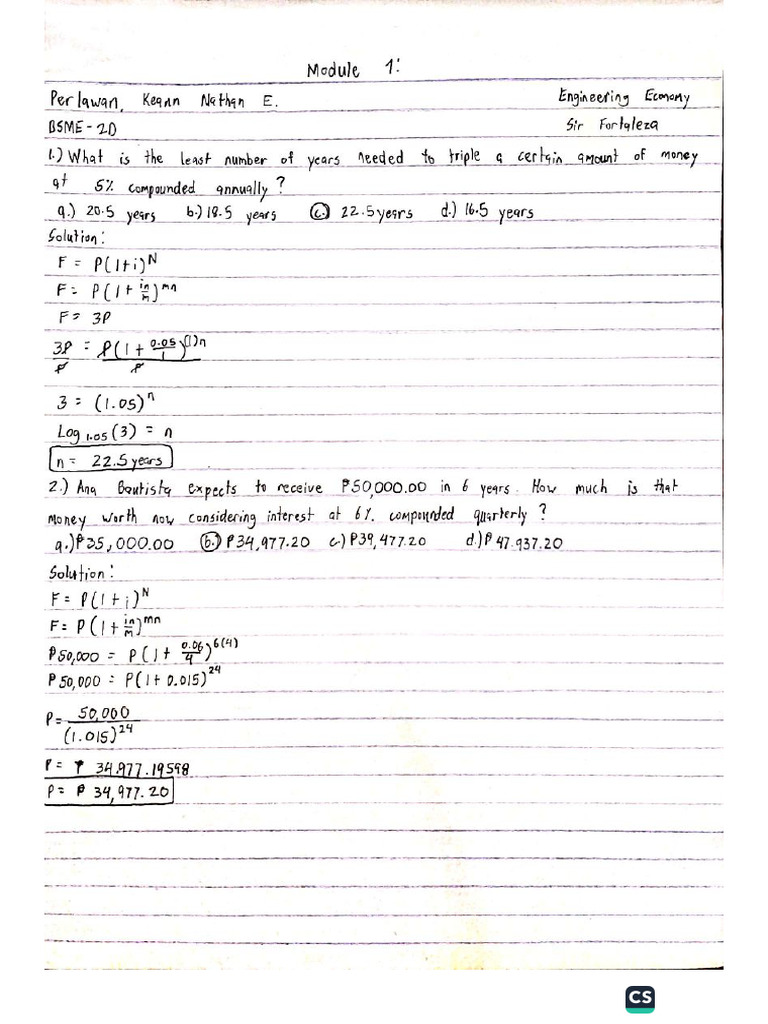 Module 1:
Perlawan, Keann Nathan E. Engineering Economy
BSME-2D Sir Fortaleza
1.) What is the least number of years needed to triple a certain amount of money
at 5% compounded annually?
a.) 20.5 years b.) 18.5 years c.) 22.5 years d.) 16.5 years
Solution:
F = P(1+i)^N
F = P(1+ in/m)^mn
F = 3P
3P/P = P(1+ 0.05/1)^(1)n/P
3 = (1.05)^n
Log1.05(3) = n
n = 22.5 years
2.) Ana Bautista expects to receive ₱50,000.00 in 6 years. How much is that
money worth now considering interest at 6% compounded quarterly?
a.) ₱35,000.00 b.) ₱34,977.20 c.) ₱39,477.20 d.) ₱47.937.20
Solution:
F = P(1+i)^N
F = P(1+ in/m)^mn
₱50,000 = P(1+ 0.06/4)^6(4)
₱50,000 = P(1+0.015)^24
P = 50,000/(1.015)^24
P = ₱ 34.977.19598
P = ₱ 34,977.20
CS